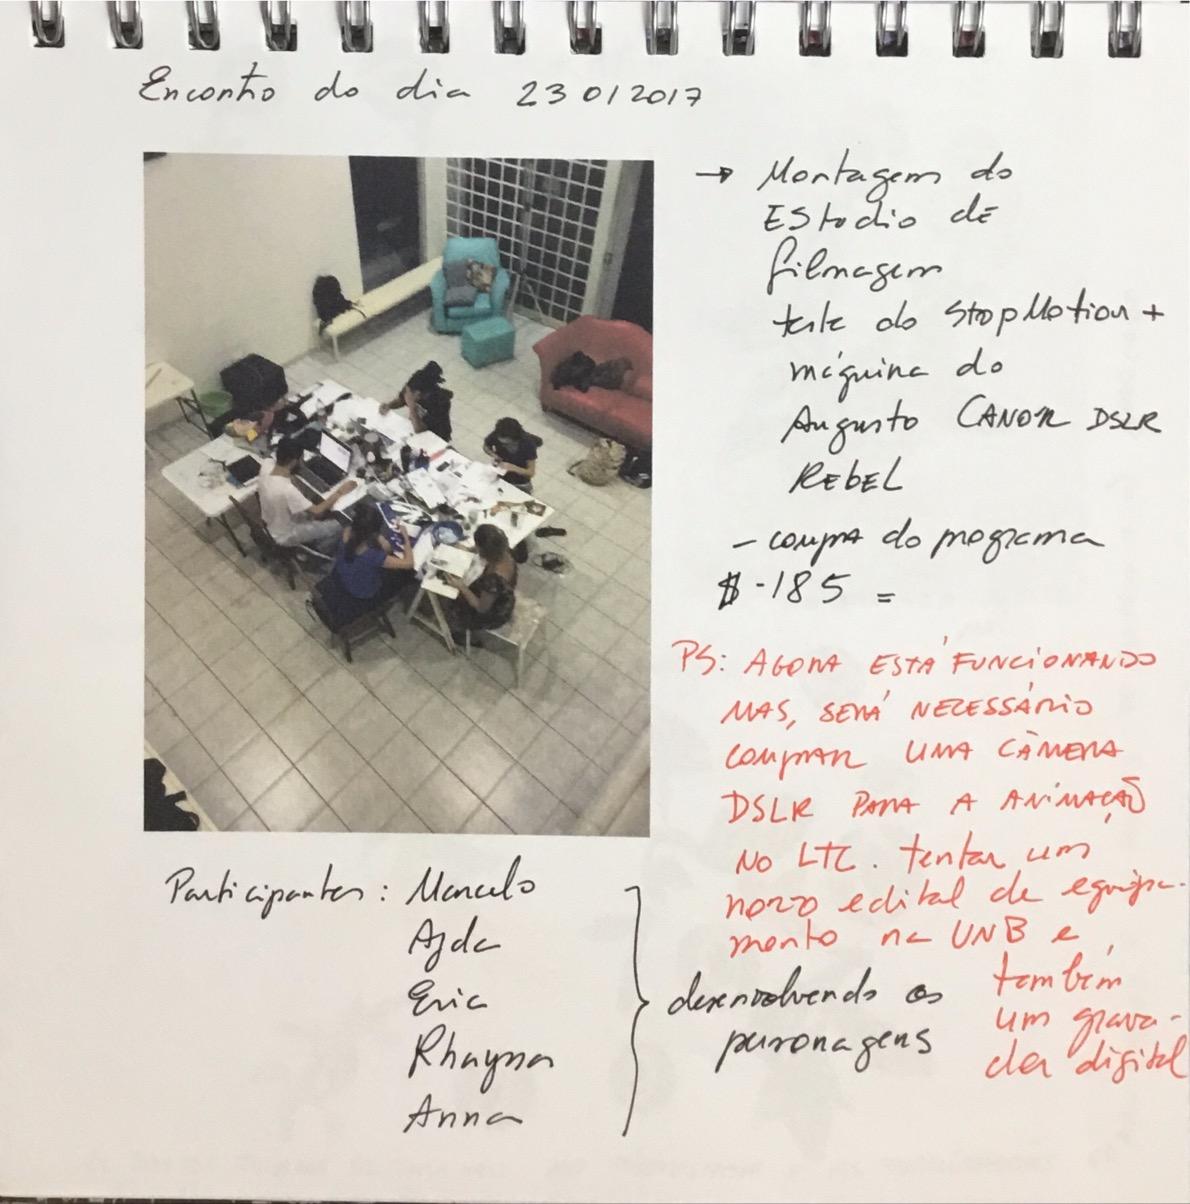 Encontro do dia 23 01 2017
→ Montagem do
EStodio de
filmagem
teste do StopMotion +
máquina do
Augusto CANON DSLR
REBEL
- compra do programa
$ - 185 =
PS: AGORA ESTÁ FUNCIONANDO
MAS, SERÁ NECESSÁRIO
COMPRAR UMA CÂMERA
DSLR PARA A ANIMAÇÃO
NO LTC. tentar um
novo edital de equipa-
mento na UNB e
também
um grava-
dor digital
Participantes: Marcelo
Ajda
Eric
Rhayssa
Anna
desenvolvendo os
personagens